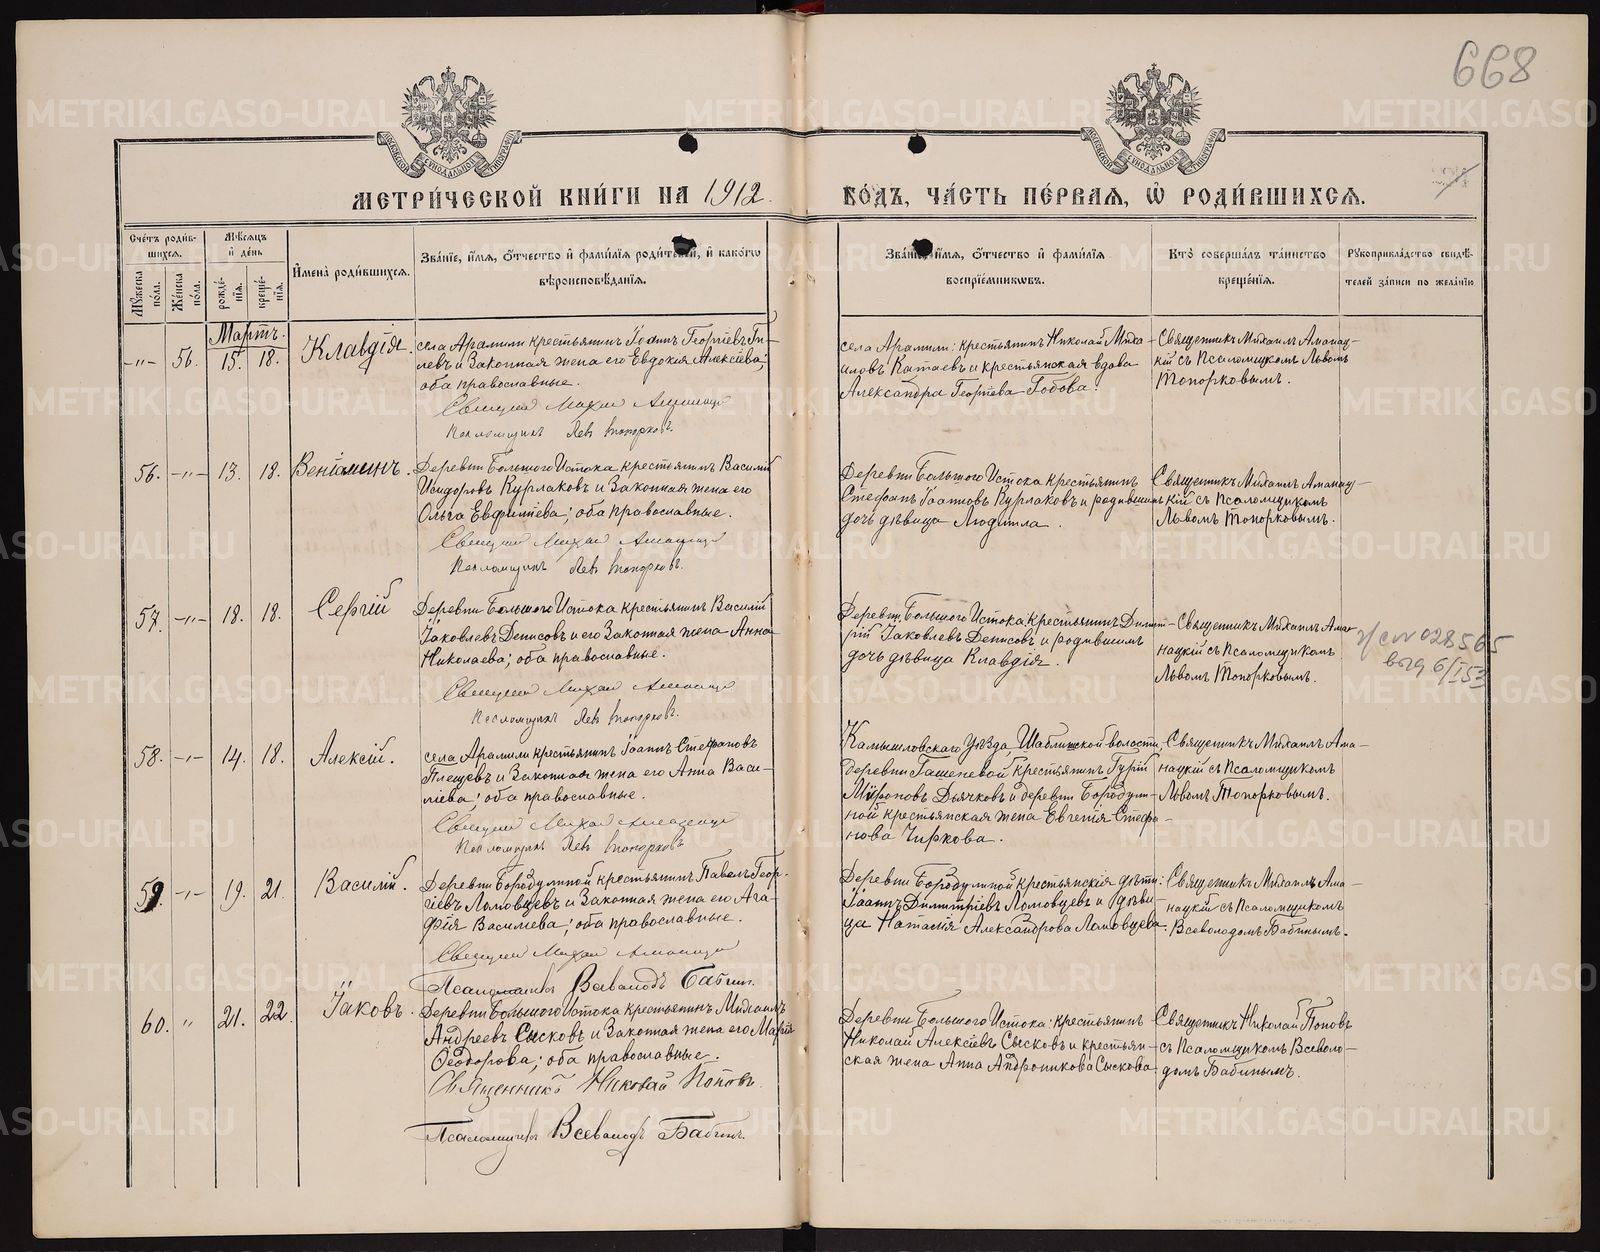 668
МЕТРИ́ЧЕСКОЙ КНИ́ГИ НА 1912.
ГО́ДЪ, ЧА́СТЬ ПЕ́РВАЯ, Ѡ҆ РОДИ́ВШИХСЯ.
Сче́тъ роди́в-
шихся.
Мꙋ́жеска по́ла.
Же́нска по́ла.
Мѣ́сяцъ
и҆ де́нь
рожде́-
нїя.
креще́-
нїя.
И҆мена̀ роди́вшихся.
Зва́нїе, и҆́мя, ѻ҆́тчество и҆ фами́лїя роди́телей, и҆ како́гѡ
вѣроисповѣ́данїя.
Зва́нїе, и҆́мя, ѻ҆́тчество и҆ фами́лїя
воспрїе́мникѡвъ.
Кто̀ соверша́лъ та́инство
креще́нїя.
Рꙋкоприкла́дство свидѣ́-
телей за́писи по жела́нїю
Мартъ.
-"- 56. 15. 18. Клавдія.
села Арамили крестьянинъ Іоаннъ Георгіевъ Ги-
левъ и законная жена его Евдокия Алексіева;
оба православные.
Священникъ Михаилъ Аманацкій
Псаломщикъ Левъ Топорковъ.
села Арамили: крестьянинъ Николай Миха-
иловъ Катаевъ и крестьянская вдова
Александра Георгіева Гобова.
Священникъ Михаилъ Аманац-
кій съ Псаломщикомъ Львомъ
Топорковымъ.
56. -"- 13. 18. Веніаминъ.
Деревни Большого Истока крестьянинъ Василій
Исидоровъ Курлаковъ и законная жена его
Ольга Евфиміева; оба православные.
Священникъ Михаилъ Аманацкій
Псаломщикъ Левъ Топорковъ.
Деревни Большого Истока крестьянинъ
Стефанъ Іоанновъ Курлаковъ и родившимъ
дочь дѣвица Людмила.
Священникъ Михаилъ Аманац-
кій съ Псаломщикомъ
Львомъ Топорковымъ.
57. -"- 18. 18. Сергій
Деревни Большого Истока крестьянинъ Василій
Іаковлевъ Денисовъ и его законная жена Анна
Николаева; оба православные.
Священникъ Михаилъ Аманацкій
Псаломщикъ Левъ Топорковъ.
Деревни Большого Истока крестьянинъ Димит-
рій Іаковлевъ Денисовъ и родившимъ
дочь дѣвица Клавдія.
Священникъ Михаилъ Ама-
нацкій съ Псаломщикомъ
Львомъ Топорковымъ.
028565
6/I 53
58. -"- 14. 18. Алексій.
села Арамили крестьянинъ Іоаннъ Стефановъ
Плещевъ и законная жена его Анна Васи-
ліева; оба православные.
Священникъ Михаилъ Аманацкій
Псаломщикъ Левъ Топорковъ
Камышловскаго Уѣзда, Шаблишской волости,
деревни Гашеневой крестьянинъ Гурій
Мироновъ Дьячковъ и деревни Бородули-
ной крестьянская жена Евгенія Стефа-
нова Чиркова.
Священникъ Михаилъ Ама-
нацкій съ Псаломщикомъ
Львомъ Топорковымъ.
59. -"- 19. 21. Василій.
Деревни Бородулиной крестьянинъ Павелъ Геор-
гіевъ Ломовцевъ и законная жена его Ага-
фія Василіева; оба православные.
Священникъ Михаилъ Аманацкій
Псаломщикъ Всеволодъ Бабинъ.
Деревни Бородулиной крестьянскія дѣти:
Іоаннъ Димитріевъ Ломовцевъ и дѣви-
ца Наталія Александрова Ломовцева.
Священникъ Михаилъ Ама-
нацкій съ Псаломщикомъ
Всеволодомъ Бабинымъ.
60. " 21. 22. Іаковъ.
Деревни Большого Истока крестьянинъ Михаилъ
Андреевъ Сысковъ и законная жена его Марія
Ѳеодорова; оба православные.
Священникъ Николай Поповъ.
Псаломщикъ Всеволодъ Бабинъ.
Деревни Большого Истока: крестьянинъ
Николай Алексіевъ Сысковъ и крестьян-
ская жена Анна Андроникова Сыскова
Священникъ Николай Поповъ
съ Псаломщикомъ Всеволо-
домъ Бабинымъ.
METRIKI.GASO-URAL.RU